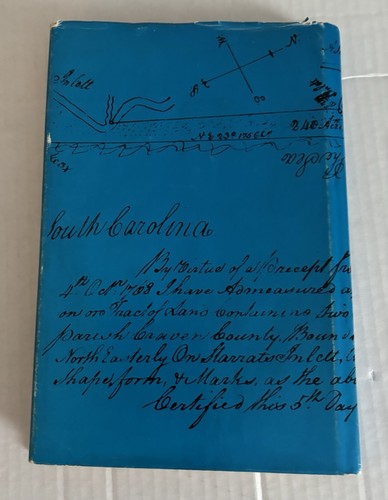 Inlett
N
S
240 Acres
South Carolina
By Virtue of a Precept fr
4th Octr 1708 I have Admeasured a
on oro Tract of Land containing two
parish Craven County, Bound
North Easterly On Starrats Inlett,
Shape, form, & Marks, as the ab
Certified this 5th Day